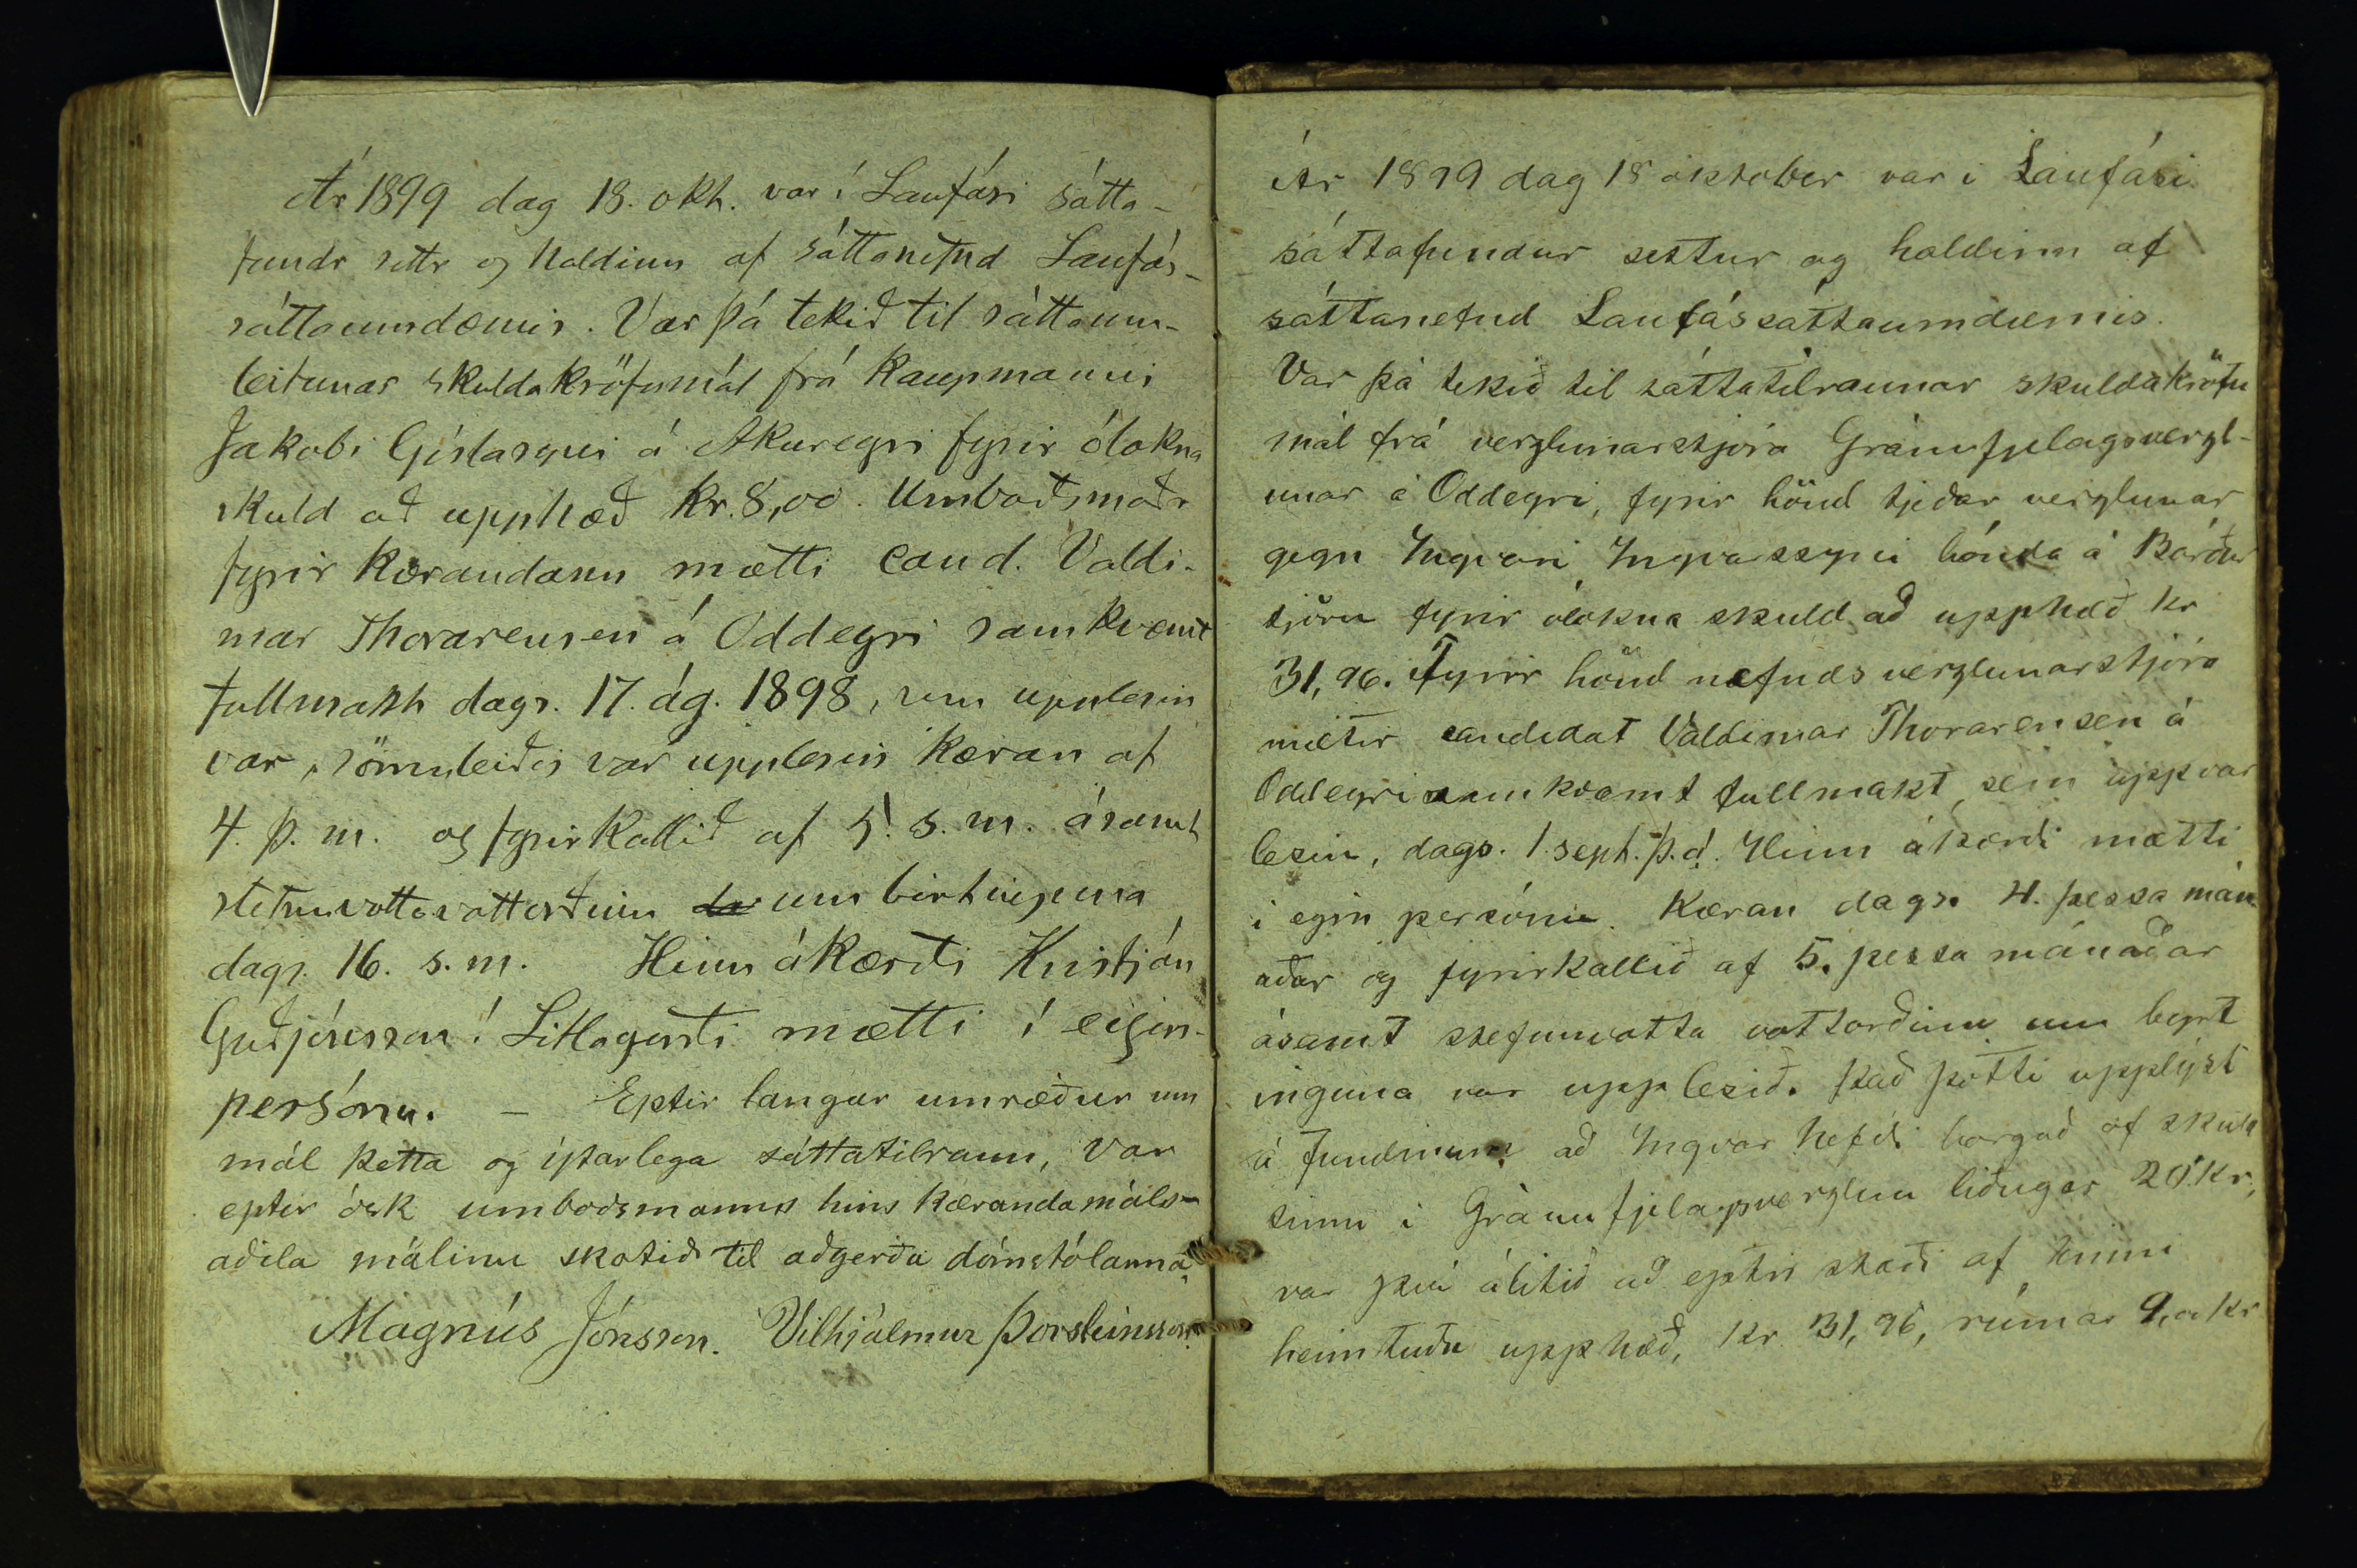 Ár 1899 dag 18. okt. var í Laufási sátta-
fundr settr og haldinn af sáttanefnd Laufás-
sáttaumdæmis. Var þá tekið til sáttaum-
leitunar skuldakröfumál frá kaupmanni
Jakobi Gíslasyni á Akureyri fyrir ólokna
skuld að upphæð kr. 8,00. Umboðsmaðr
fyrir kærandann mætti cand. Valdi-
mar Thorarensen á Oddeyri samkvæmt
fullmakt dags. 17. ág. 1898, sem upplesin
var, sömuleiðis var upplesin kæran af
4. þ. m. og fyrirkallið af 5. s. m. ásamt
stefnuvottavottorðinu um birtinguna
dags. 16. s. m. Hinn ákærði Kristján
Guðjónsson í Litlagerði mætti í eigin-
persónu. – Eptir langar umræður um
mál þetta og ýtarlega sáttatilraun, var
eptir ósk umboðsmanns hins kæranda máls-
aðila málinu skotið til aðgerða dómstólanna.
Magnús Jónsson. Vilhjálmur Þorsteinsson.
Ár 1899 dag 18 október var í Laufási
sáttafundur settur og haldinn af
sáttanefnd Laufássáttaumdæmis.
Var þá tekið til sáttatilraunar skuldakröfu
mál frá verzlunarstjóra Gránufjelagsverzl-
unar á Oddeyri, fyrir hönd tjeðar verzlunar
gegn Ingvari Ingvarssyni bónda á Bárðar
tjörn fyrir ólokna skuld að upphæð kr
31,96. Fyrir hönd nefnds verzlunarstjóra
mætir candidat Valdimar Thorarensen á
Oddeyri samkvæmt fullmakt, sem upp var
lesin, dags. 1. sept. þ.á. Hinn ákærði mætti
í egin persónu. Kæran dags. 4. þessa mán-
aðar og fyrirkallið af 5. þessa mánaðar
ásamt stefnuvotta vottorðinu um byrt
inguna var upp lesið. Það þótti upplýst
á fundinum að Ingvar hefði borgað af skuld
sinni í Gránufjelagsverzlun liðugar 20 kr,
var því álitið að eptir stæði af hinni
heimtuðu upphæð, kr 31,96, rúmar 9,00 kr